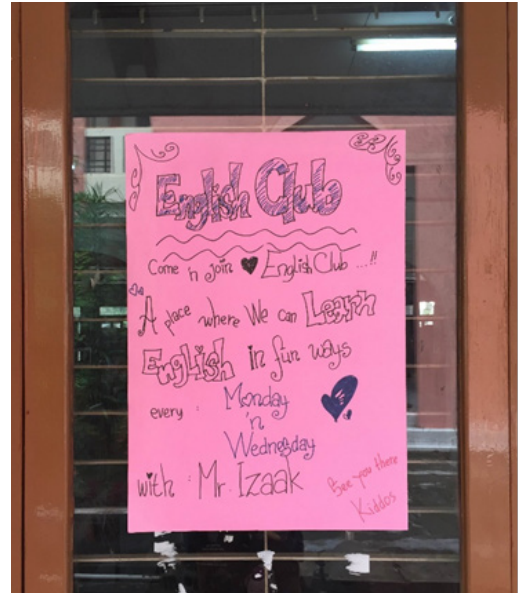 English Club
Come 'n join English Club ...!!
A place where We can Learn
English in fun ways
every : Monday
'n
Wednesday
with : Mr. Izaak
See you there
Kiddos